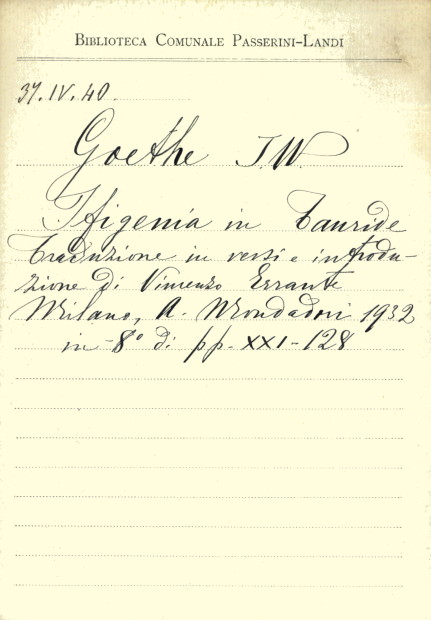 BIBLIOTECA COMUNALE PASSERINI-LANDI
3Y.IV.40
Goethe J.W.
Ifigenia in Tauride
Traduzione in versi e introdu-
zione di Vincenzo Errante
Milano, A. Mondadori 1932
in-8° di pp. XXI-128